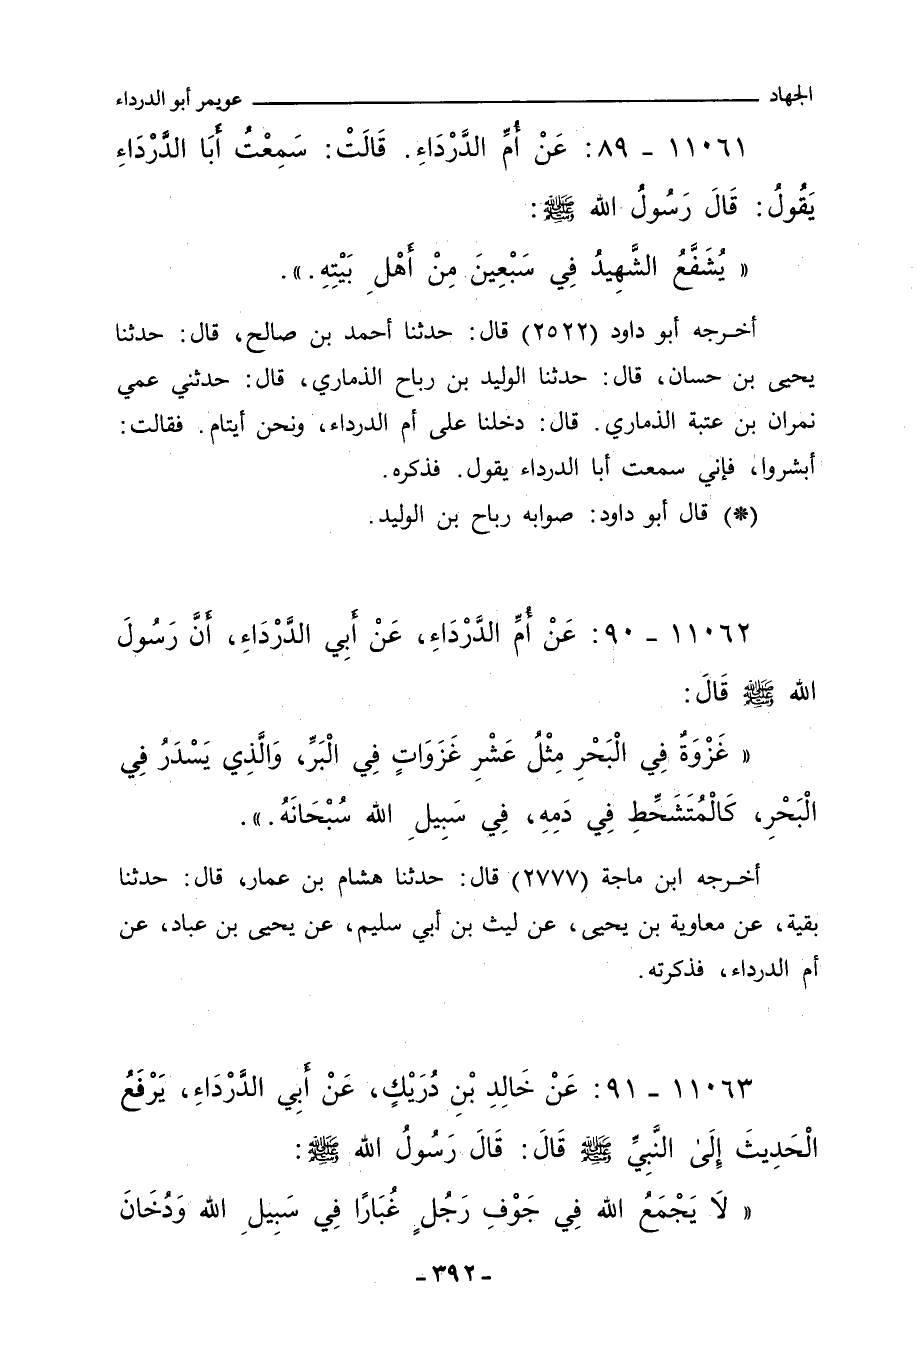 الجهاد ــــــــــ عويمر أبو الدرداء
١١٠٦١ - ٨٩: عَنْ أُمِّ الدَّرْدَاءِ. قَالَتْ: سَمِعْتُ أَبَا الدَّرْدَاءِ
يَقُولُ: قَالَ رَسُولُ الله ﷺ:
« يُشَفَّعُ الشَّهِيدُ فِي سَبْعِينَ مِنْ أَهْلِ بَيْتِهِ.».
أخـرجه أبو داود (٢٥٢٢) قال: حدثنا أحمد بن صالح، قال: حدثنا
يحيى بن حسان، قال: حدثنا الوليد بن رباح الذماري، قال: حدثني عمي
نمران بن عتبة الذماري. قال: دخلنا على أم الدرداء، ونحن أيتام. فقالت:
أبشروا، فإني سمعت أبا الدرداء يقول. فذكره.
(*) قال أبو داود: صوابه رباح بن الوليد.
١١٠٦٢ - ٩٠: عَنْ أُمِّ الدَّرْدَاءِ، عَنْ أَبِي الدَّرْدَاءِ، أَنَّ رَسُولَ
الله ﷺ قَالَ:
« غَزْوَةٌ فِي الْبَحْرِ مِثْلُ عَشْرِ غَزَوَاتٍ فِي الْبَرِّ، وَالَّذِي يَسْدَرُ فِي
الْبَحْرِ، كَالْمُتَشَحِّطِ فِي دَمِهِ، فِي سَبِيلِ الله سُبْحَانَهُ.».
أخـرجه ابن ماجة (٢٧٧٧) قال: حدثنا هشام بن عمار، قال: حدثنا
بقية، عن معاوية بن يحيى، عن ليث بن أبي سليم، عن يحيى بن عباد، عن
أم الدرداء، فذكرته.
١١٠٦٣ - ٩١: عَنْ خَالِدِ بْنِ دُرَيْكٍ، عَنْ أَبِي الدَّرْدَاءِ، يَرْفَعُ
الْحَدِيثَ إِلَىٰ النَّبِيِّ ﷺ قَالَ: قَالَ رَسُولُ الله ﷺ:
« لَا يَجْمَعُ الله فِي جَوْفِ رَجُلٍ غُبَارًا فِي سَبِيلِ الله وَدُخَانَ
- ٣٩٢ -